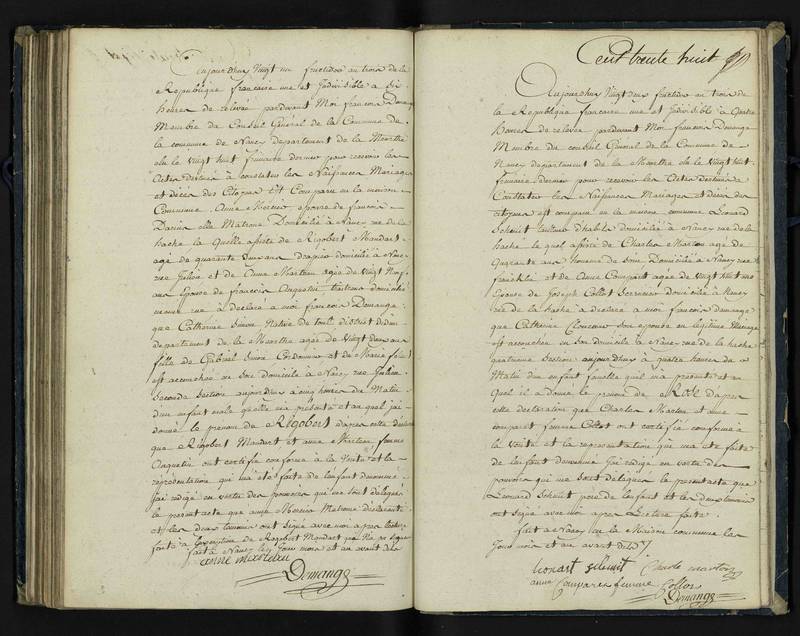 aujourdhuy Vingt un fructidor an trois de la
Republique francaise une et Indivisible a Six
heures de relevée pardevant Moi francois Domange
Membre du Conseil Général de la Commune de
la commune de Nancy departement de la Meurthe
elu le vingt huit frimaire dernier pour recevoir les
Actes destinés à constater les Naissances Mariages
et décès des Citoyens Est Comparu en la maison
Commune Anne Mercier epouse de francois
Darin elle Matrone Domicilié à Nancy rue de la
hache la quelle assisté de Rigobert Mandart
agé de quarante deux ans Drapier domicilié a Nancy
rue Julien et de Anne Marteau agée de vingt Neuf
ans Epouse de francois Anquetin domicilié
meme rue a déclaré a moi francois Domange
que Catherine Simon Native de toul district dudit
departement de la Meurthe agée de vingt deux ans
fille de Gabriel Simon Cordonnier et de Marie
est accouchée en son domicile à Nancy rue Julien
Seconde Section aujourdhuy à cinq heures du Matin
d'un enfant male qu'elle m'a présenté et au quel j'ai
donné le prenom de Rigobert d'apres cette declaration
que Rigobert Mandart et anne Marteau femme
Anquetin ont certifié conforme à la Vérité et la
représentation qui m'a été faite de l'enfant denommé
j'ai rédigé en vertu des pouvoirs qui me sont délégués
le present acte que anne Mercier Matrone déclarante
et les deux temoins ont Signé avec moi apres lecture
faite à l'exception de Rigobert Mandart qui
fait à Nancy les Jour mois et an avant dits
anne marteau
Domange
Cent trente huit
Aujourdhuy Vingt deux fructidor an trois de
la Republique francaise une et Indivisible a quatre
heures de relevée pardevant Moi francois Domange
Membre du conseil Général de la Commune de
Nancy departement de la Meurthe elu le vingt huit
frimaire dernier pour recevoir les Actes destinés à
Constater les Naissances Mariages et décès des
citoyens est comparu en la maison commune Léonard
Scheuit tailleur d'habits domicilié à Nancy rue de la
hache le quel assisté de Charles Marton agé de
Quarante ans Domicilié à Nancy rue
francklin et de Anne Comparet agée de vingt huit ans
Epouse de Joseph Collot Serrurier domicilié à Nancy
rue de la hache a déclaré a moi francois domange
que Catherine son epouse en légitime Mariage
est accouchée en son domicile à Nancy rue de la hache
quatrieme Section aujourdhuy à quatre heures du
Matin d'un enfant femelle qu'il m'a présenté et au
Quel il a donné le prenom de Rose d'apres
cette déclaration que Charles Marton et anne
Comparet femme Collot ont certifié conforme à
la Vérité et la représentation qui m'a été faite
de l'enfant denommé j'ai rédigé en vertu des
pouvoirs qui me sont délégués le present acte que
Léonard Scheuit pere de l'enfant et les deux temoins
ont Signé avec moi apres Lecture faite
fait à Nancy en la Maison commune les
Jour mois et an avant dits
Charle marton
anne Comparet femme Collot
Domange